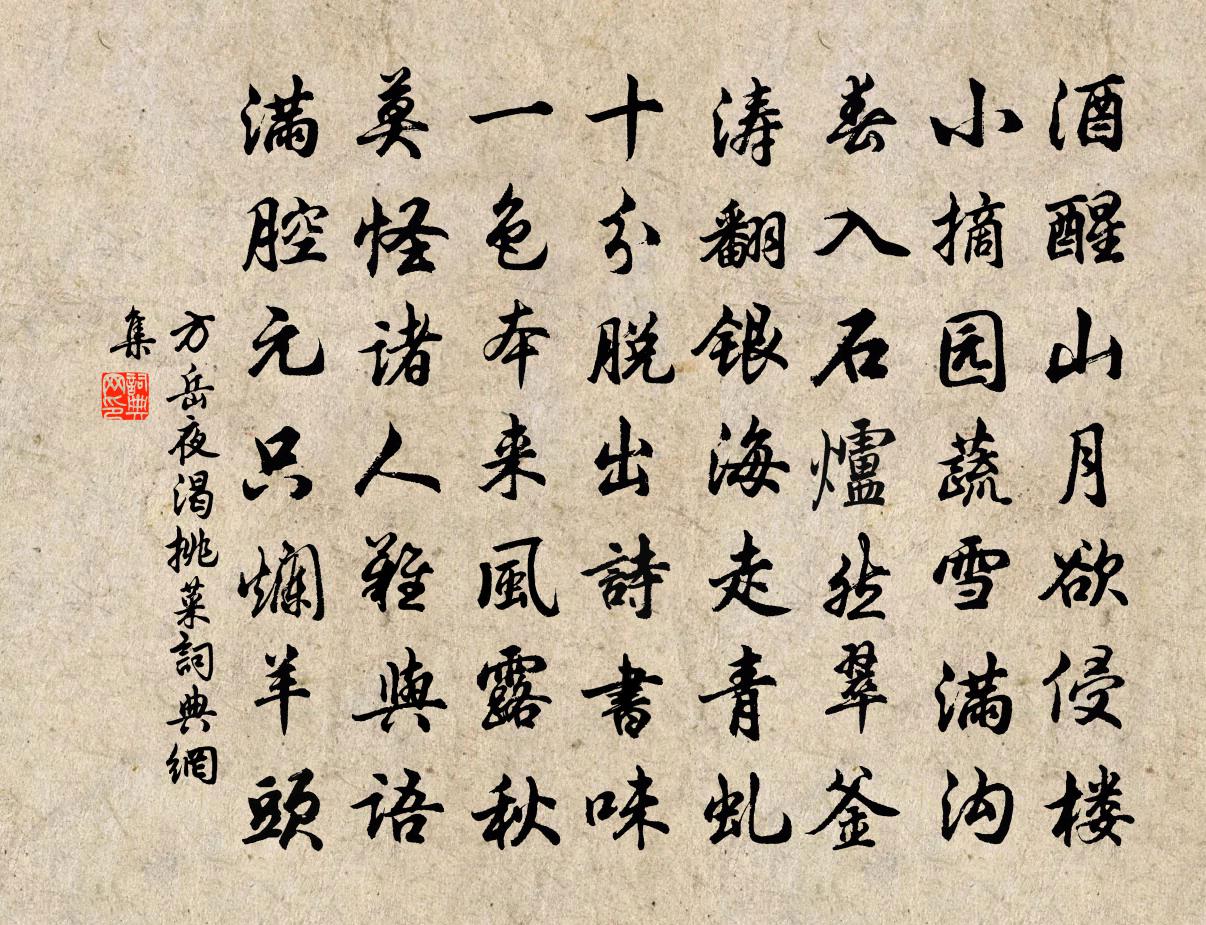 酒醒山月欲侵楼
小摘园蔬雪满沟
春入石爐然翠釜
涛翻银海走青虬
十分脱出詩書味
一色本来風露秋
莫怪诸人難與语
满腔元只爛羊頭
方岳夜渴挑菜詞典網
集
詞典网印